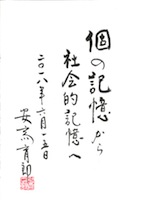 個の記憶から
社会的記憶へ
二〇一八年六月一五日
安斎育郎